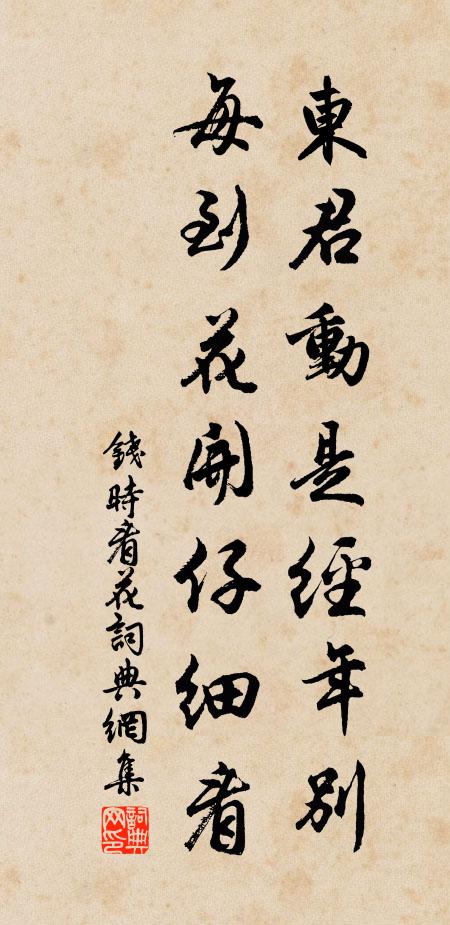 東君動是經年別
每到花開仔細看
錢時看花詞典網集
詞典网印